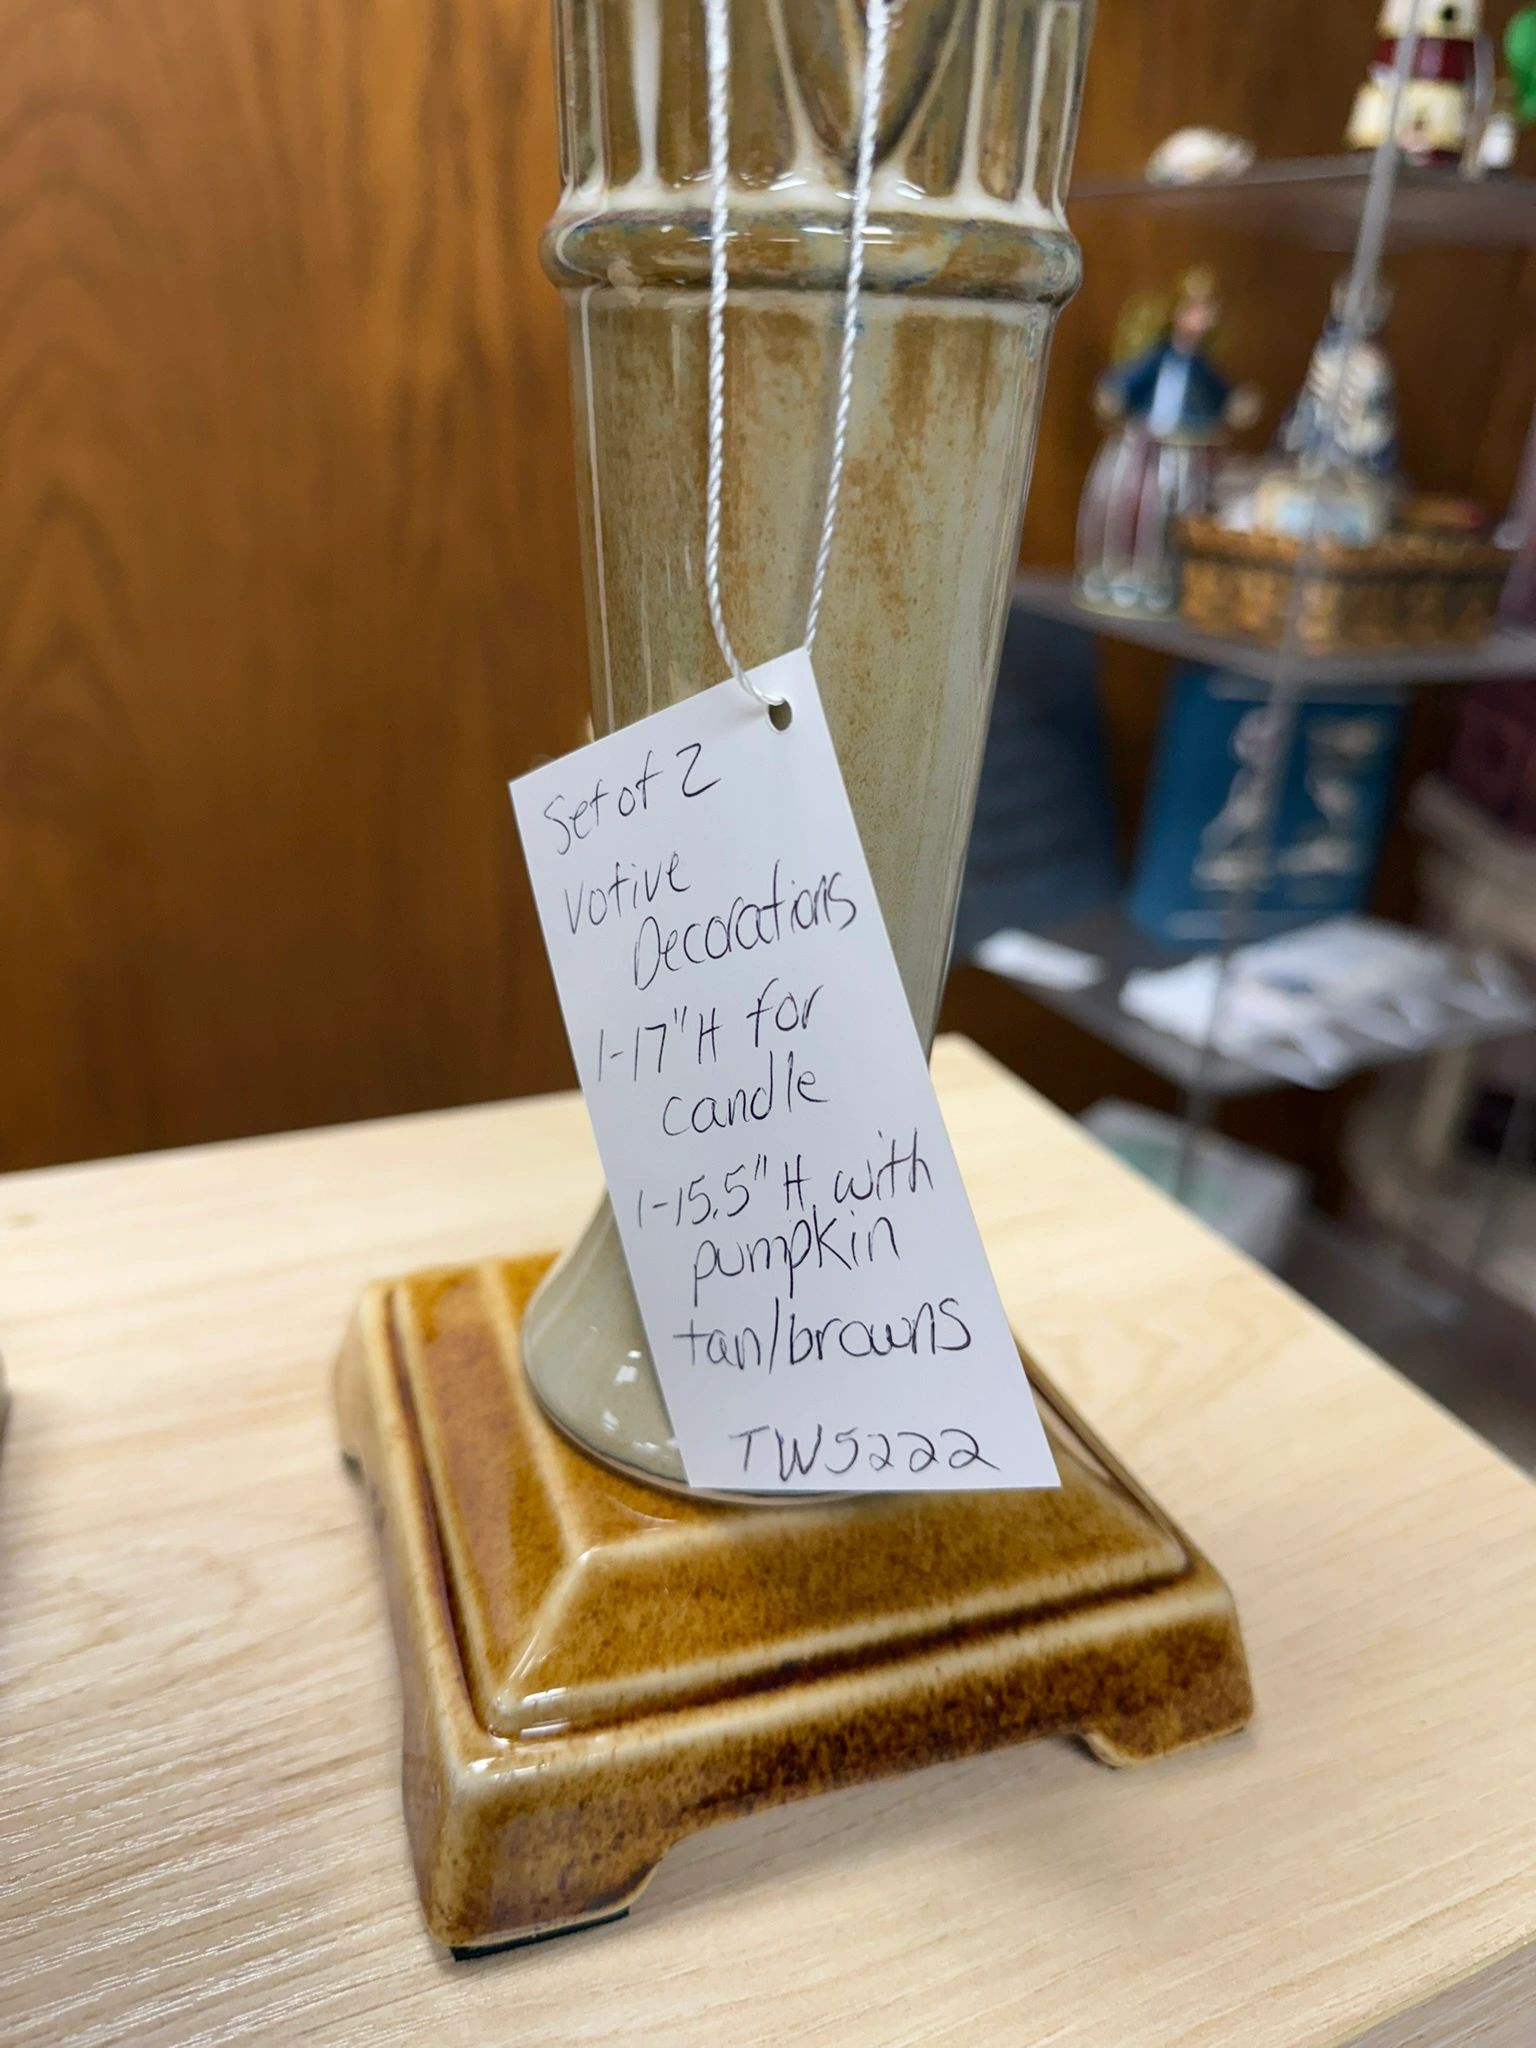 Set of 2
votive
Decorations
1-17" H for
candle
1-15.5" H with
pumpkin
tan/browns
TW5222